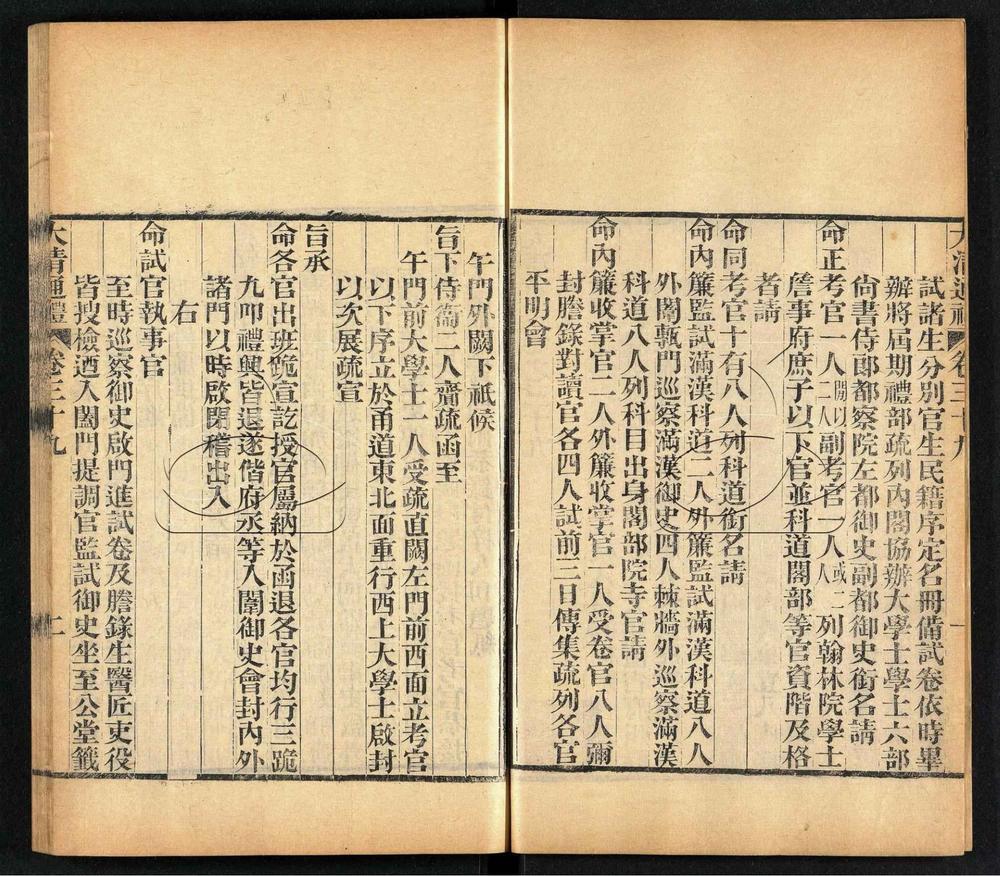 大清通禮 卷三十九 一
試諸生分別官生民籍序定名冊備試卷依時畢
辦將屆期禮部疏列內閣協辦大學士學士六部
尚書侍郎都察院左都御史副都御史銜名請
命正考官一人間以二人副考官一人或二人列翰林院學士
詹事府庶子以下官並科道閣部等官資階及格
者請
命同考官十有八人列科道銜名請
命內簾監試滿漢科道二人外簾監試滿漢科道八人
外闈甎門巡察滿漢御史四人棘牆外巡察滿漢
科道八人列科目出身閣部院寺官請
命內簾收掌官二人外簾收掌官一人受卷官八人彌
封謄錄對讀官各四人試前三日傳集疏列各官
平明會
午門外闕下祇候
旨下侍衞二人齎疏函至
午門前大學士一人受疏直闕左門前西面立考官
以下序立於甬道東北面重行西上大學士啟封
以次展疏宣
旨承
命各官出班跪宣訖授官屬納於函退各官均行三跪
九叩禮興皆退遂偕府丞等入闈御史會封內外
諸門以時啟閉稽出入
右
命試官執事官
至時巡察御史啟門進試卷及謄錄生醫匠吏役
皆搜檢迺入闔門提調官監試御史坐至公堂籤
大清通禮 卷三十九 二